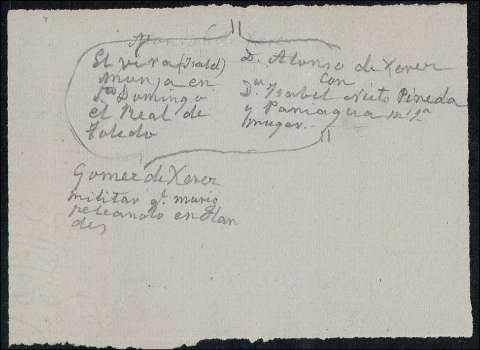 Elvira (Isabel)
monja en
Sto Domingo
el Real de
Toledo
Dn. Alonso de Xerez
con
Dª Ysabel Nieto Pineda
y Paniagua su 2ª
muger.
Gomez de Xerez
militar q. murio
peleando en Flan
des